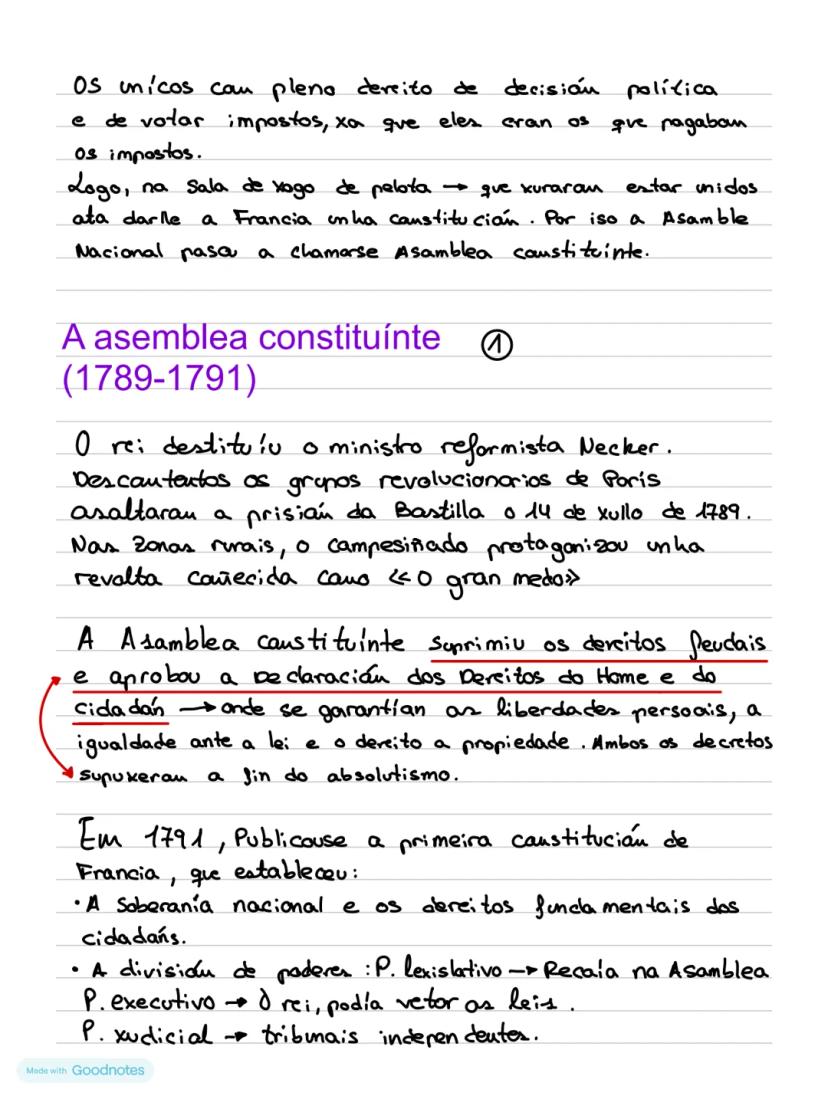 Os únicos con pleno dereito de decisión política
e de votar impostos, xa que eles eran os que pagaban
os impostos.
Logo, na Sala de xogo de pelota → que xuraron estar unidos
ata darlle a Francia unha constitución. Por iso a Asamble
Nacional pasou a chamarse Asamblea constituínte.
A asemblea constituínte ①
(1789-1791)
O rei destituíu o ministro reformista Necker.
Descontentos os grupos revolucionarios de París
asaltaron a prisión da Bastilla o 14 de xullo de 1789.
Nas zonas rurais, o campesiñado protagonizou unha
revolta coñecida como «O gran medo»
A Asamblea constituínte suprimiu os dereitos feudais
e aprobou a Declaración dos Dereitos do Home e do
cidadán → onde se garantían as liberdades persoais, a
igualdade ante a lei e o dereito a propiedade. Ambos os decretos
supuxeron a fin do absolutismo.
Em 1791, Publicouse a primeira constitución de
Francia, que estableceu:
• A Soberanía nacional e os dereitos fundamentais dos
cidadáns.
• A división de poderes : P. lexislativo → Recaía na Asamblea
P. executivo → O rei, podía vetar as leis.
P. xudicial → tribunais independentes.
Made with Goodnotes